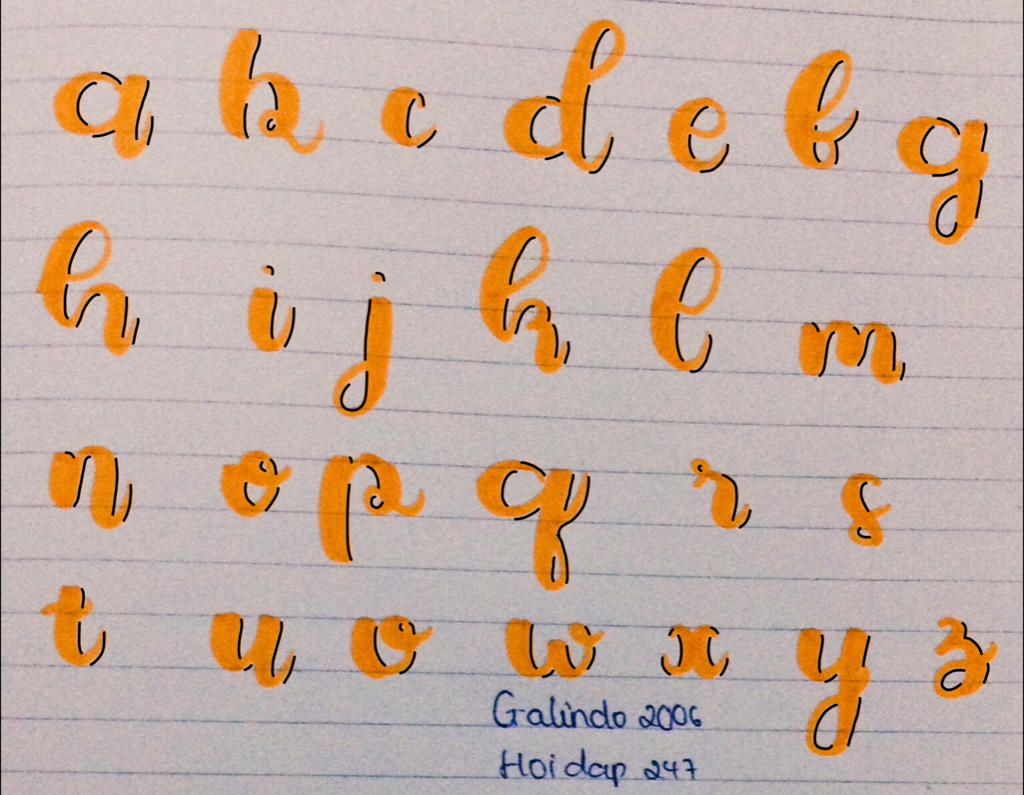 a b c d e f g
h i j k l m
n o p q r s
t u v w x y z
Galindo 2006
Hoidap 247